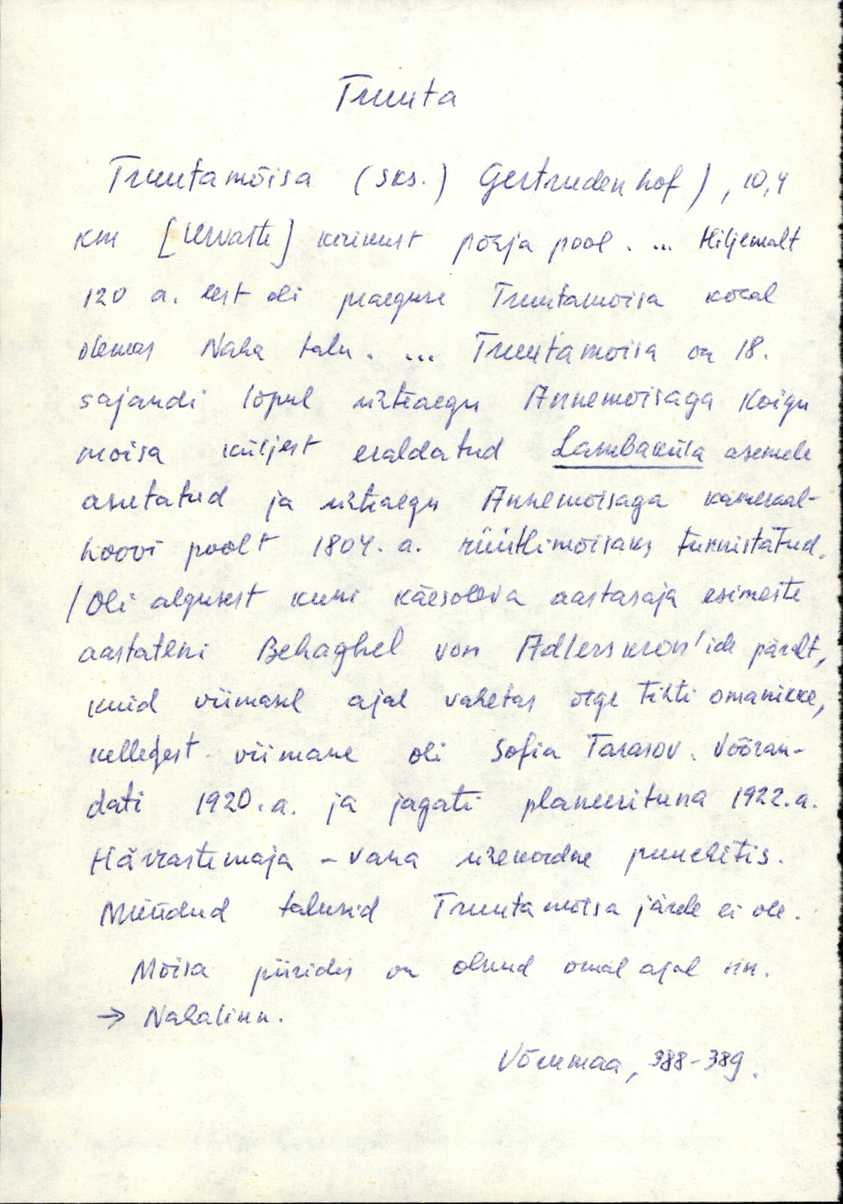 Truuta
Truutamõisa (sks.) Gertrudenhof), 10,4
km [Urvaste] kirikust põhja pool. ... Hiljemalt
120 a. eest oli praeguse Truutamõisa kohal
olemas Naha talu. ... Truutamõisa on 18.
sajandi lõpul ühteaegu Annemõisaga Koigu
mõisa küljest eraldatud Lambaküla asemele
asutatud ja ühteaegu Annemõisaga kameraal-
hoovi poolt 1804. a. rüütlimõisaks tunnistatud.
/Oli algusest kuni käesoleva aastasaja esimeste
aastateni Behaghel von Adlerskron'ide päralt,
kuid viimasel ajal vahetas õige tihti omanikke,
kellegest viimane oli Sofia Tarasov. Võõran-
dati 1920. a. ja jagati planeerituna 1922. a.
Härrastemaja - vana ühekordne puuehitis.
Müüdud talusid Truutamõisa järele ei ole.
Mõisa piirides on olnud omal ajal nn.
→ Nahalinn.
Võrumaa, 388-389.